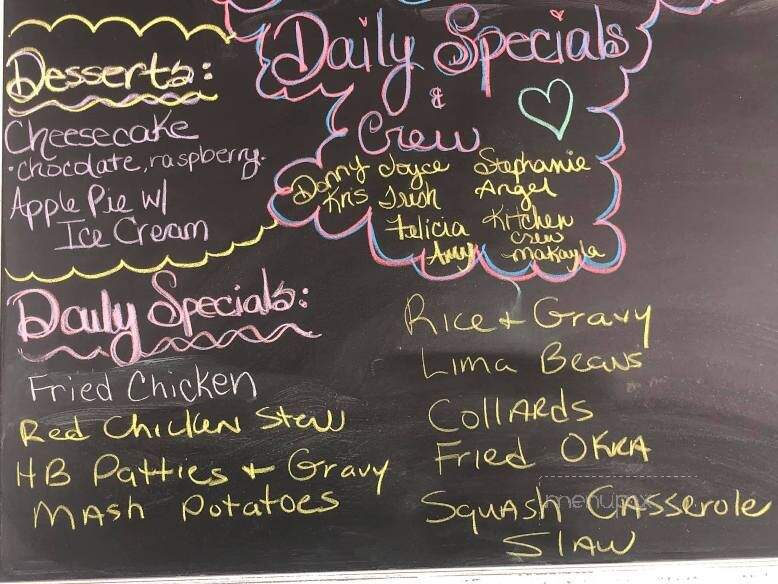 Desserts:
Cheesecake
•chocolate, raspberry.
Apple Pie w/
Ice Cream
Daily Specials
&
Crew
Donny Joyce Stephanie
Kris Trish Angel
Felicia Kitchen
crew
Amy Makayla
Daily Specials:
Fried Chicken
Red Chicken Stew
HB Patties + Gravy
Mash Potatoes
Rice + Gravy
Lima Beans
Collards
Fried Okra
Squash Casserole
Slaw
menupix